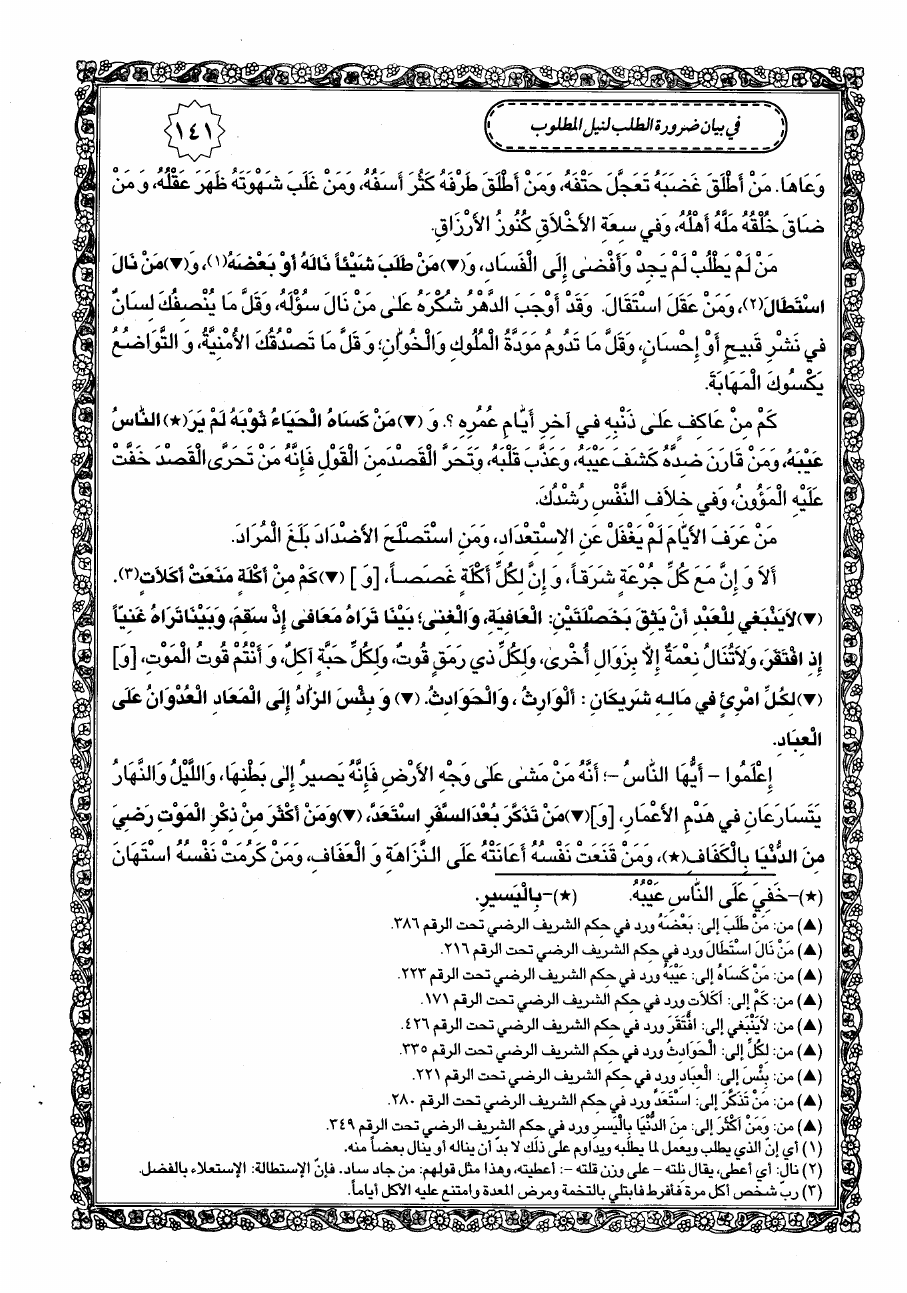 في بيان ضرورة الطلب لنيل المطلوب
١٤١
وَعَاهَا. مَنْ أَطْلَقَ غَضَبَهُ تَعَجَّلَ حَتْفَهُ، وَمَنْ أَطْلَقَ طَرْفَهُ كَثُرَ أَسَفُهُ، وَمَنْ غَلَبَ شَهْوَتَهُ ظَهَرَ عَقْلُهُ، وَ مَنْ
ضَاقَ خُلْقُهُ مَلَّهُ أَهْلُهُ، وَفي سِعَةِ الأَخْلاَقِ كُنُوزُ الأَرْزَاقِ.
مَنْ لَمْ يَطْلُبْ لَمْ يَجِدْ وَأَفْضىٰ إِلَى الْفَسَادِ، وَ(▼)مَنْ طَلَبَ شَيْئاً نَالَهُ أَوْ بَعْضَهُ(١)، وَ(▼)مَنْ نَالَ
اسْتَطَالَ(٢)، وَمَنْ عَقَلَ اسْتَقَالَ. وَقَدْ أَوْجَبَ الدَّهْرُ شُكْرَهُ عَلىٰ مَنْ نَالَ سُؤْلَهُ، وَقَلَّ مَا يُنْصِفُكَ لِسَانٌ
في نَشْرِ قَبيحٍ أَوْ إِحْسَانٍ، وَقَلَّ مَا تَدُومُ مَوَدَّةُ الْمُلُوكِ وَالْخُوَّانِ؛ وَ قَلَّ مَا تَصْدُقُكَ الأُمْنِيَّةُ، وَ التَّوَاضُعُ
يَكْسُوكَ الْمَهَابَةَ.
كَمْ مِنْ عَاكِفٍ عَلىٰ ذَنْبِهِ في آخِرِ أَيَّامِ عُمُرِهِ ؟. وَ (▼)مَنْ كَسَاهُ الْحَيَاءُ ثَوْبَهُ لَمْ يَرَ(★) النَّاسُ
عَيْبَهُ، وَمَنْ قَارَنَ ضِدَّهُ كَشَفَ عَيْبَهُ، وَعَذَّبَ قَلْبَهُ، وَتَحَرَّ الْقَصْدَ مِنَ الْقَوْلِ فَإِنَّهُ مَنْ تَحَرَّى الْقَصْدَ خَفَّتْ
عَلَيْهِ الْمَؤُونُ، وَفي خِلاَفِ النَّفْسِ رُشْدُكَ.
مَنْ عَرَفَ الأَيَّامَ لَمْ يَغْفَلْ عَنِ الإِسْتِعْدَادِ، وَمَنِ اسْتَصْلَحَ الأَضْدَادَ بَلَغَ الْمُرَادَ.
أَلاَ وَ إِنَّ مَعَ كُلِّ جُرْعَةٍ شَرَقاً، وَ إِنَّ لِكُلِّ أَكْلَةٍ غَصَصاً، [وَ ] (▼)كَمْ مِنْ أَكْلَةٍ مَنَعَتْ أَكَلاَتٍ(٣).
(▼)لاَيَنْبَغي لِلْعَبْدِ أَنْ يَثِقَ بِخَصْلَتَيْنِ: الْعَافِيَةِ، وَالْغِنىٰ؛ بَيْنَا تَرَاهُ مُعَافىً إِذْ سَقِمَ، وَبَيْنَا تَرَاهُ غَنِيّاً
إِذِ افْتَقَرَ، وَلاَتُنَالُ نِعْمَةٌ إِلاَّ بِزَوَالِ أُخْرىٰ، وَلِكُلِّ ذي رَمَقٍ قُوتٌ، وَلِكُلِّ حَبَّةٍ آكِلٌ، وَ أَنْتُمْ قُوتُ الْمَوْتِ، [وَ]
(▼)لِكُلِّ امْرِئٍ في مَالِهِ شَريكَانِ : أَلْوَارِثُ ، وَالْحَوَادِثُ. (▼) وَ بِئْسَ الزَّادُ إِلَى الْمَعَادِ الْعُدْوَانُ عَلَى
الْعِبَادِ.
إِعْلَمُوا – أَيُّهَا النَّاسُ –؛ أَنَّهُ مَنْ مَشىٰ عَلىٰ وَجْهِ الأَرْضِ فَإِنَّهُ يَصيرُ إِلىٰ بَطْنِهَا، وَاللَّيْلُ وَالنَّهَارُ
يَتَسَارَعَانِ في هَدْمِ الأَعْمَارِ، [وَ](▼)مَنْ تَذَكَّرَ بُعْدَ السَّفَرِ اسْتَعَدَّ، (▼)وَمَنْ أَكْثَرَ مِنْ ذِكْرِ الْمَوْتِ رَضِيَ
مِنَ الدُّنْيَا بِالْكَفَافِ(★)، وَمَنْ قَنَعَتْ نَفْسُهُ أَعَانَتْهُ عَلَى النَّزَاهَةِ وَ الْعَفَافِ، وَمَنْ كَرُمَتْ نَفْسُهُ اسْتَهَانَ
(★)–خَفِيَ عَلَى النَّاسِ عَيْبُهُ. (★)–بِالْيَسيرِ.
(▲) من: مَنْ طَلَبَ إلى: بَعْضَهُ ورد في حكم الشريف الرضي تحت الرقم ٣٨٦.
(▲) مَنْ نَالَ اسْتَطَالَ ورد في حكم الشريف الرضي تحت الرقم ٢١٦.
(▲) من: مَنْ كَسَاهُ إلى: عَيْبَهُ ورد في حكم الشريف الرضي تحت الرقم ٢٢٣.
(▲) من: كَمْ إلى: أَكَلاَت ورد في حكم الشريف الرضي تحت الرقم ١٧١.
(▲) من: لاَيَنْبَغي إلى: افْتَقَرَ ورد في حكم الشريف الرضي تحت الرقم ٤٢٦.
(▲) من: لِكُلِّ إلى: الْحَوَادِثُ ورد في حكم الشريف الرضي تحت الرقم ٣٣٥.
(▲) من: بِئْسَ إلى: الْعِبَادِ ورد في حكم الشريف الرضي تحت الرقم ٢٢١.
(▲) من: مَنْ تَذَكَّرَ إلى: اسْتَعَدَّ ورد في حكم الشريف الرضي تحت الرقم ٢٨٠.
(▲) من: وَمَنْ أَكْثَرَ إلى: مِنَ الدُّنْيَا بِالْيَسيرِ ورد في حكم الشريف الرضي تحت الرقم ٣٤٩.
(١) أي إنّ الذي يطلب ويعمل لما يطلبه ويداوم على ذلك لا بدّ أن يناله أو ينال بعضاً منه.
(٢) نال: أي أعطى، يقال نلته – على وزن قلته –: أعطيته، وهذا مثل قولهم: من جاد ساد. فإنّ الإستطالة: الإستعلاء بالفضل.
(٣) ربّ شخص أكل مرة فأفرط فابتلي بالتخمة ومرض المعدة وامتنع عليه الأكل أياماً.